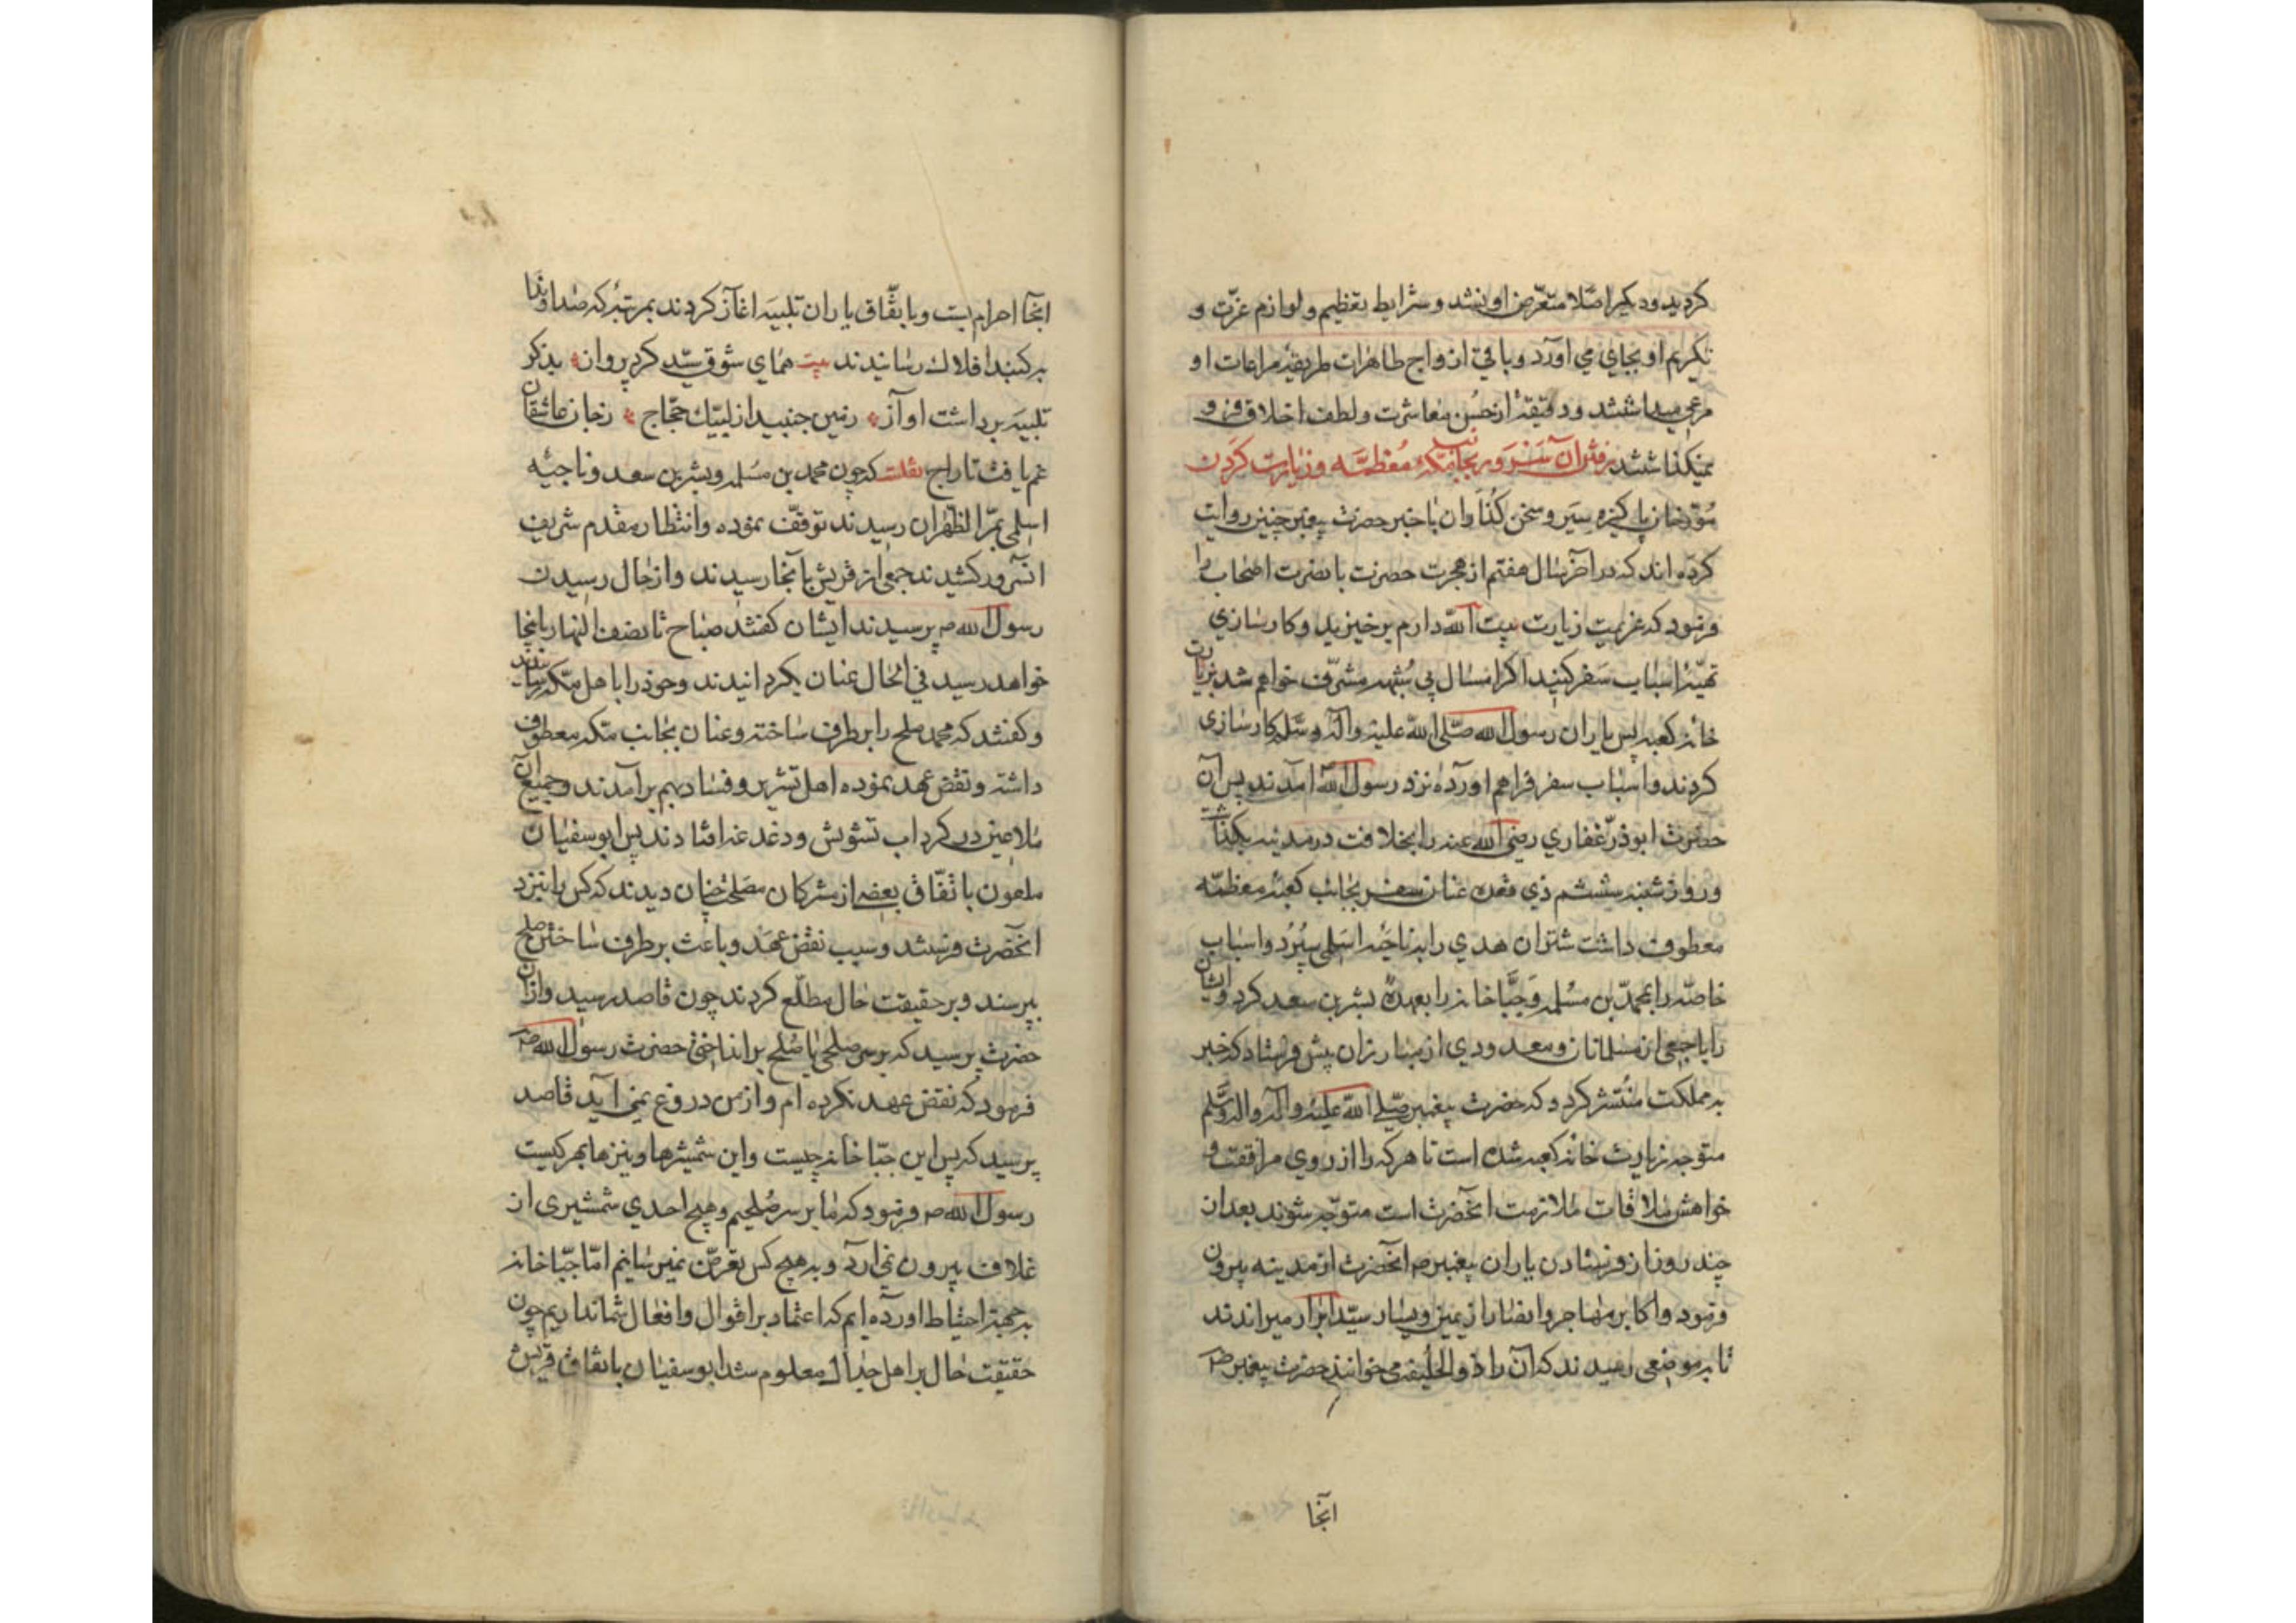 کردید و دیگر اصلا متعرض او نشد و شرایط تعظیم و لوازم عزّت و
تکریم او بجای می اورد و باقی ازواج طاهرات طریقهٔ مراعات او
مرعی میداشتند و دقیقهٔ از حُسن معاشرت و لطف اخلاق فرو
نمیکذاشتند رفتن آن سَروَر بجانب مکهٔ مُعظمَّه و زیارت کردن
مُوّرخان پاکیزه سِیَر و سخن کُذاران با خبر حضرت پیغمبر چنین روایت
کرده اند که در آخر سال هفتم از هجرت حضرت با نصرت اصحاب را
فرمود که عزیمت زیارت بیت اللّه دارم برخیزید و کارسازی
تهیّهٔ اسباب سَفر کنید اکر امسال بی شُبهه مشرّف خواهم شد بزیارت
خانهٔ کعبه پس یاران رسول الله صلّی اللّه علیه واله وسلّم کارسازی
کردند و اسباب سفر فراهم اورده نزد رسول اللّه امدند پس آن
حضرت ابوذرّ غفاری رضی اللّه عنه را بخلافت در مدینه بکذاشت
و روز شنبه ششم ذی قعده عنان سفر بجانب کعبهٔ معظمّه
معطوف داشت شتران هدی را به ناجیهٔ اسلمی سپُرد و اسباب
خاصّه را بمحمدّ بن مسُلمه و جبَّاخانه را بعهدهٔ بشر بن سعد کرد و ایشان
را با جمعی از مسلمانان و معدودی از مبارزان پیش فرستاد که خبر
به مملکت مُنتشر کردد که حضرت پیغمبر صلّی اللّه علیه واله واله وسَّلم
متوجه زیارت خانهٔ کعبه شده است تا هر که را از روی مرافقت و
خواهش ملاقات ملازمت انحضرت است متوجّه شوند بعد از
چند روز از فرستادن یاران پیغمبر ص انحضرت از مدینه بیرون
فرمود و اکابر مهاجر و انصار از یمین و یسار سیّد ابرار میراندند
تا به موضعی رسیدند که آن را ذوالحلیفه می خوانند حضرت پیغمبر ص
انجا
انجا احرام بست و با تفّاق یاران تلبیه اغاز کردند بمرتبهٔ که صدا و ندا
به کنبد افلاک رسانیدند بیت همای شوق سیّد کرد پرواز بذکر
تلبیه برداشت اواز زمین جنبید از لبیّک حجّاج زجان عاشقان
غم یافت تاراج نقلت که چون محمد بن مسَلمه و بشر بن سعد و ناجیهٔ
اسلمی بمرّ الظهران رسیدند توقفّ نموده و انتظار مقدم شریف
انسرور کشیدند جمعی از قریش بانجا رسیدند و از حال رسیدن
رسول الله ص پرسیدند ایشان کفتند صباح تا نصف النهار بانجا
خواهد رسید فی الحال عنان بکردانیدند و خود را باهل مکه رسانیدند
و کفتند که محمد صلح را برطرف ساخته و عنان بجانب مکه معطوف
داشته و نقض عهد نموده اهل تشریر و فساد بهم برآمدند و جمیع آن
ملاعین در کرداب تشویش و دغدغه افتادند پس ابوسفیان
ملعون با تفّاق بعضی از مشرکان مصلحت چنان دیدند که کس را نزد
انحضرت فرستند و سبب نقض عهد و باعث برطرف ساختن صلح
بپرسند و بر حقیقت حال مطلّع کردند چون قاصد رسید و از آن
حضرت پرسید که بر سر صلحی یا صُلح برانداختی حضرت رسول الله ص
فرمود که نقض عهد نکرده ام و از من دروغ نمی آید قاصد
پرسید که پس این جبّا خانه چیست و این شمشیرها و نیزها بهر کیست
رسول الله ص فرمود که ما بر سر صُلحیم و هیچ احدی شمشیری از
غلاف بیرون نمی ارد و به هیچ کس تعرضّ نمیرسانیم امّا جبّا خانه
به جهة احتیاط اورده ایم که اعتماد بر اقوال و افعال شما نداریم چون
حقیقت حال بر اهل جدال معلوم شد ابوسفیان باتفاق قریش